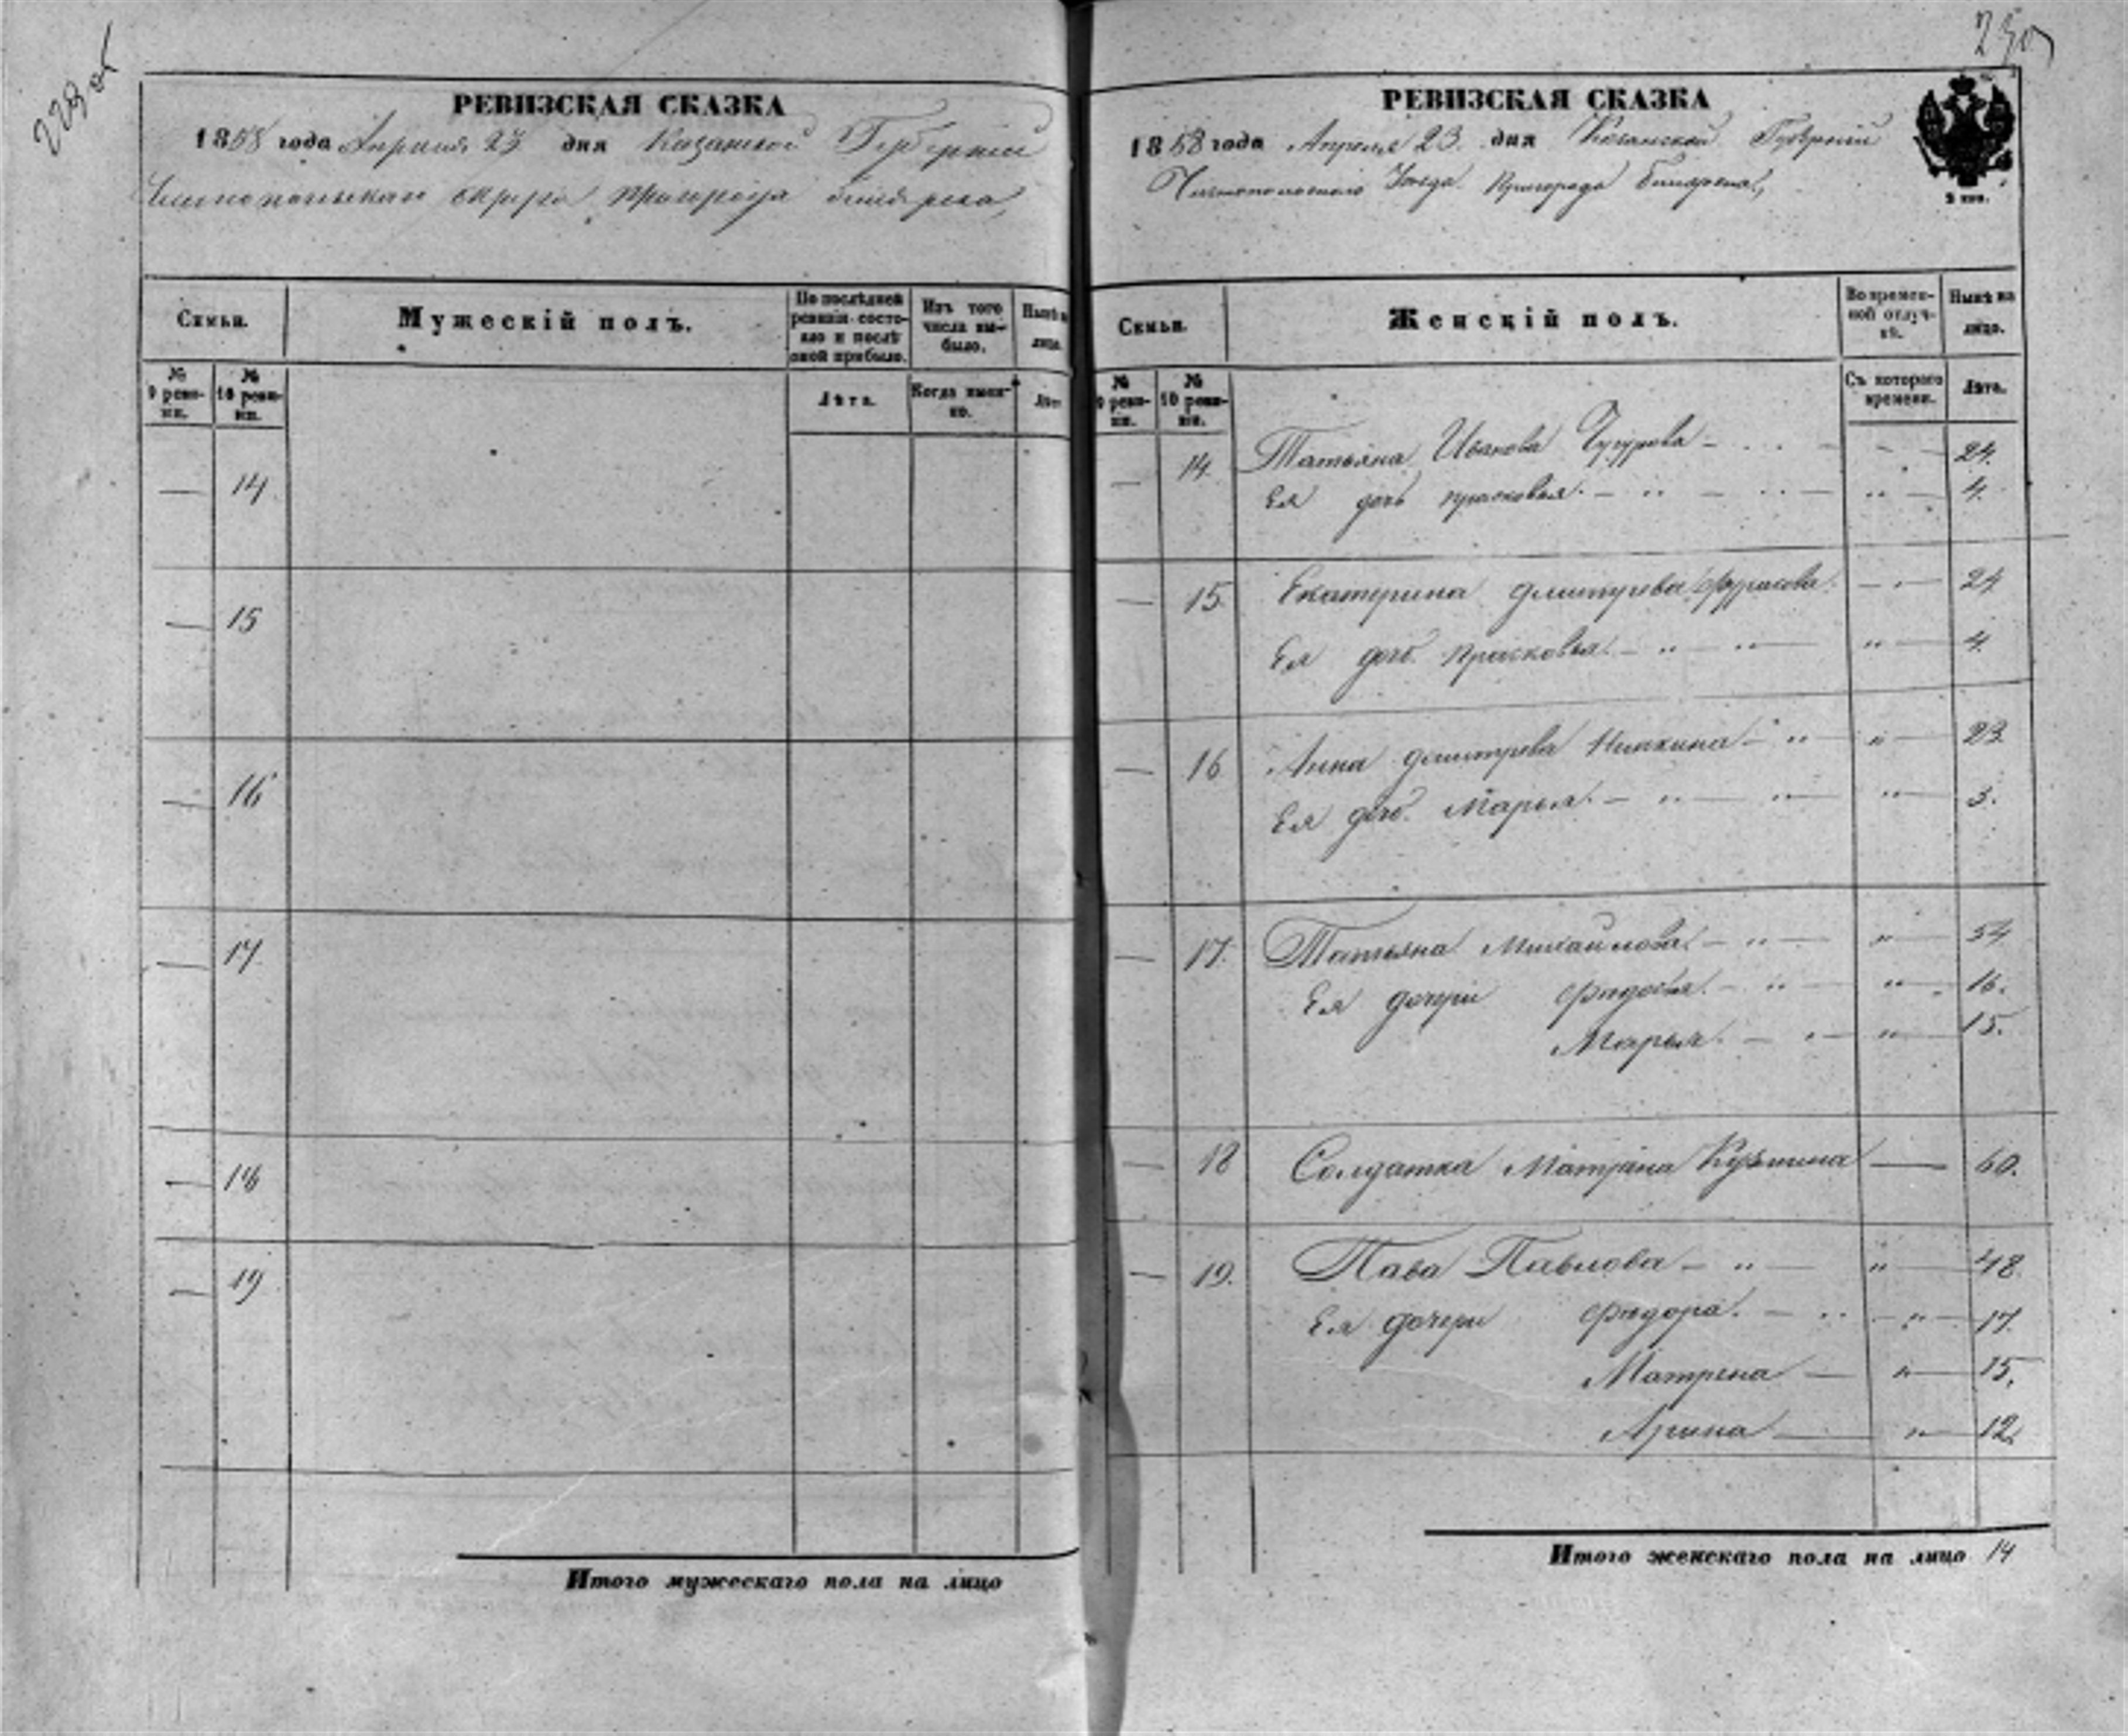 229 об
РЕВИЗСКАЯ СКАЗКА
1858 года Апреля 23 дня Казанской Губернии
Чистопольскаго округа, пригорода Билярска,
Семьи.
Мужескій полъ.
По послѣдней ревизіи состояло и послѣ оной прибыло.
Изъ того числа выбыло.
Нынѣ на лицо.
№ 9 ревизіи.
№ 10 ревизіи.
Лѣта.
Когда именно.
Лѣта
— 14
— 15
— 16
— 17
— 18
— 19
Итого мужескаго пола на лицо
230
РЕВИЗСКАЯ СКАЗКА
1858 года Апреля 23. дня Казанской Губерніи
Чистопольскаго Уезда Пригорода Билярска,
2 коп.
Семьи.
Женскій полъ.
Во временной отлучкѣ.
Нынѣ на лицо.
№ 9 ревизіи.
№ 10 ревизіи.
Съ котораго времени.
Лѣта.
— 14. Татьяна Иванова 24.
Ея дочь прасковья. — " — " — " — 4.
— 15 Екатерина дмитріева — " — 24
Ея доч. прасковья. — " — " — " — 4.
— 16 Анна дмитрева — " " — 23
Ея доч. Марья. — " — " — " — 3.
— 17. Татьяна Михаилова — " — " — 54
Ея дочери Федосья. — " — " — 16.
Марья. — " — " — 15.
— 18 Солдатка Матрена Кузмина — 60.
— 19. Павлова — " — " — 48.
Ея дочери Федора. — " — " — 17.
Матрена — " — 15.
Арина — " — 12.
Итого женскаго пола на лицо 14